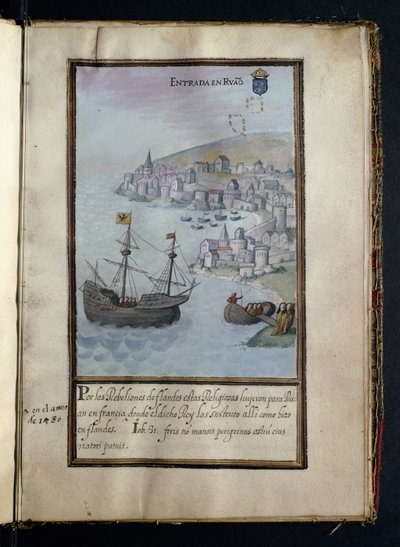 ENTRADA EN RVÃO.
Por las Rebeliones de flandes estas Religiosas huyeron para Ru-
an en francia donde el dicho Rey las sustento alli como hizo
en flandes. Iob. 31. foris nõ mansit peregrinus ostiũ eius
viatori patuit.
en el anno
de 1580